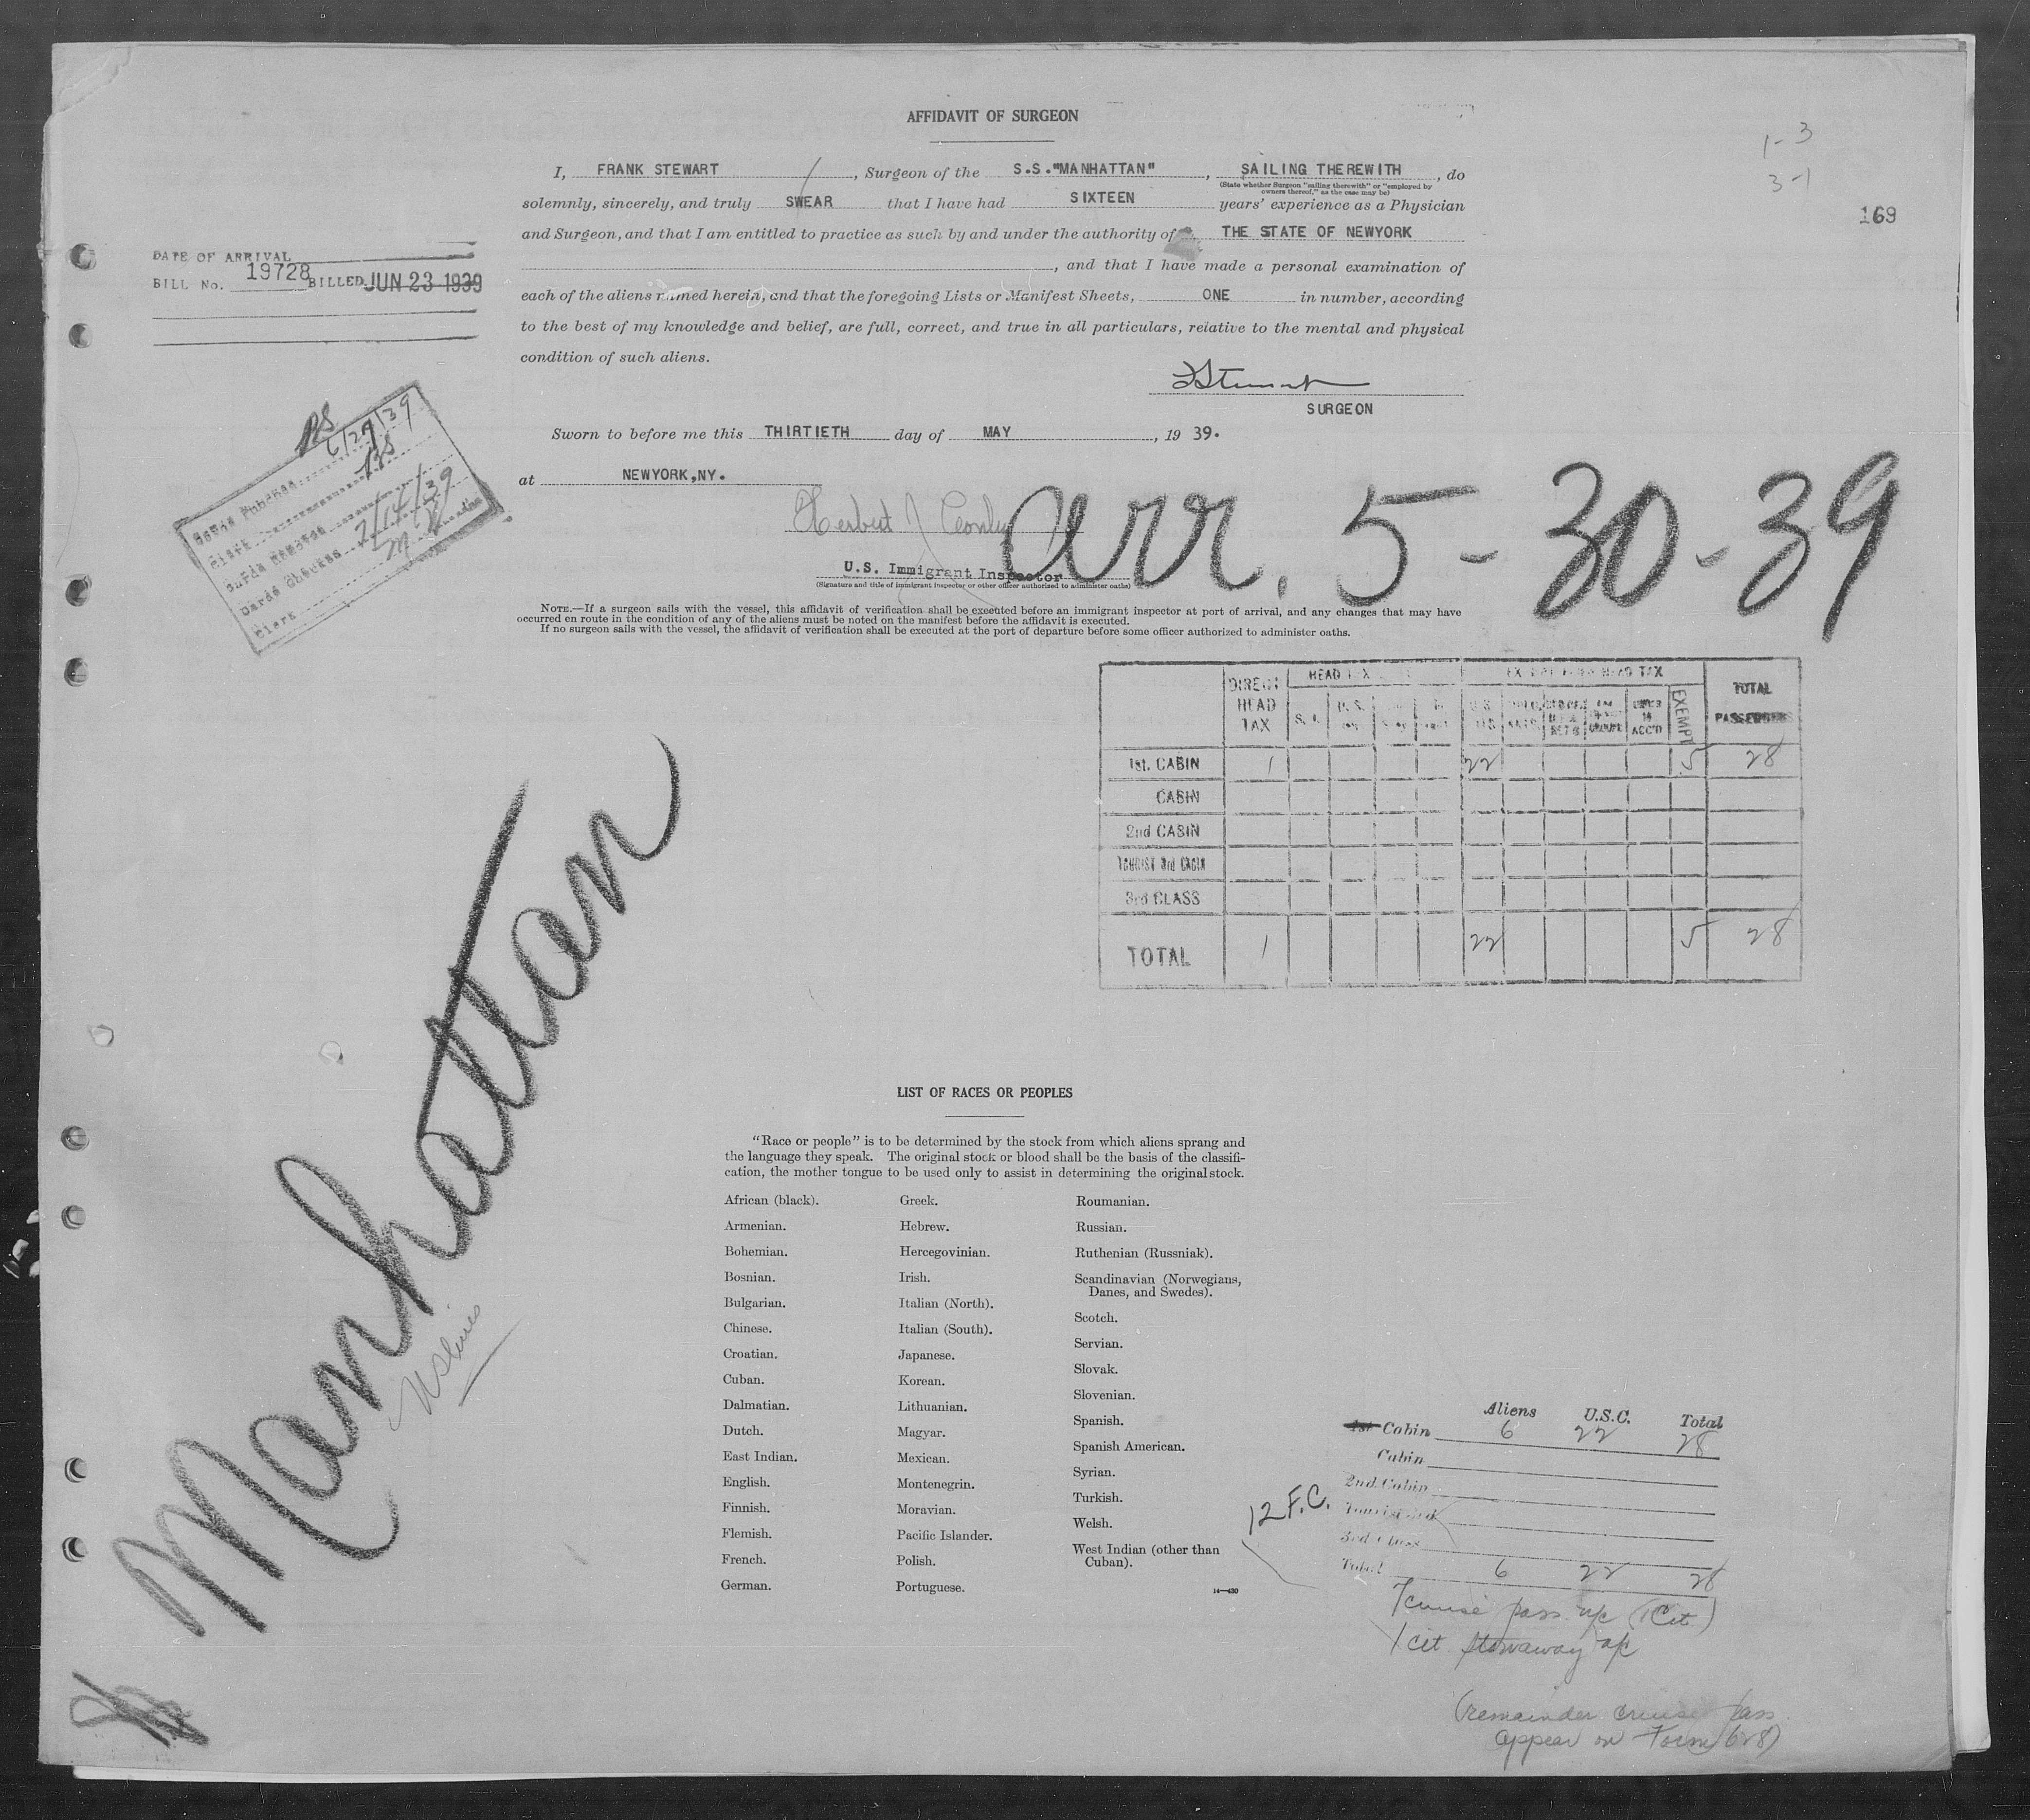 AFFIDAVIT OF SURGEON
1-3
3-1
169
I, FRANK STEWART, Surgeon of the S.S."MANHATTAN", SAILING THEREWITH, do
(State whether Surgeon "sailing therewith" or "employed by owners thereof," as the case may be)
solemnly, sincerely, and truly SWEAR that I have had SIXTEEN years' experience as a Physician
and Surgeon, and that I am entitled to practice as such by and under the authority of THE STATE OF NEWYORK
, and that I have made a personal examination of
each of the aliens named herein, and that the foregoing Lists or Manifest Sheets, ONE in number, according
to the best of my knowledge and belief, are full, correct, and true in all particulars, relative to the mental and physical
condition of such aliens.
DATE OF ARRIVAL
BILL No. 19728 BILLED JUN 23 1939
FStewart
SURGEON
Sworn to before me this THIRTIETH day of MAY, 19 39.
at NEWYORK,NY.
6/27/39
Clerk
7/14/39
Cards Checked
Clerk
Herbert J
arr. 5-30-39
U.S. Immigrant Inspector
(Signature and title of immigrant inspector or other officer authorized to administer oaths)
NOTE.—If a surgeon sails with the vessel, this affidavit of verification shall be executed before an immigrant inspector at port of arrival, and any changes that may have
occurred en route in the condition of any of the aliens must be noted on the manifest before the affidavit is executed.
If no surgeon sails with the vessel, the affidavit of verification shall be executed at the port of departure before some officer authorized to administer oaths.
DIRECT HEAD TAX
HEAD TAX
HEAD TAX
EXEMPT
TOTAL PASSENGERS
1st. CABIN 1 22 5 28
CABIN
2nd CABIN
TOURIST 3rd CABIN
3rd CLASS
TOTAL 1 22 5 28
Manhattan
US Lines
LIST OF RACES OR PEOPLES
"Race or people" is to be determined by the stock from which aliens sprang and
the language they speak. The original stock or blood shall be the basis of the classifi-
cation, the mother tongue to be used only to assist in determining the original stock.
African (black).
Armenian.
Bohemian.
Bosnian.
Bulgarian.
Chinese.
Croatian.
Cuban.
Dalmatian.
Dutch.
East Indian.
English.
Finnish.
Flemish.
French.
German.
Greek.
Hebrew.
Hercegovinian.
Irish.
Italian (North).
Italian (South).
Japanese.
Korean.
Lithuanian.
Magyar.
Mexican.
Montenegrin.
Moravian.
Pacific Islander.
Polish.
Portuguese.
Roumanian.
Russian.
Ruthenian (Russniak).
Scandinavian (Norwegians,
Danes, and Swedes).
Scotch.
Servian.
Slovak.
Slovenian.
Spanish.
Spanish American.
Syrian.
Turkish.
Welsh.
West Indian (other than
Cuban).
14—430
Aliens U.S.C. Total
1st Cabin 6 22 28
Cabin
2nd Cabin
Tourist 3rd
3rd Class
Total 6 22 28
12 F.C.
7 cruise pass. a/c (1 Cit)
1 cit. stowaway a/c
(remainder cruise pass
appear on Form 628)